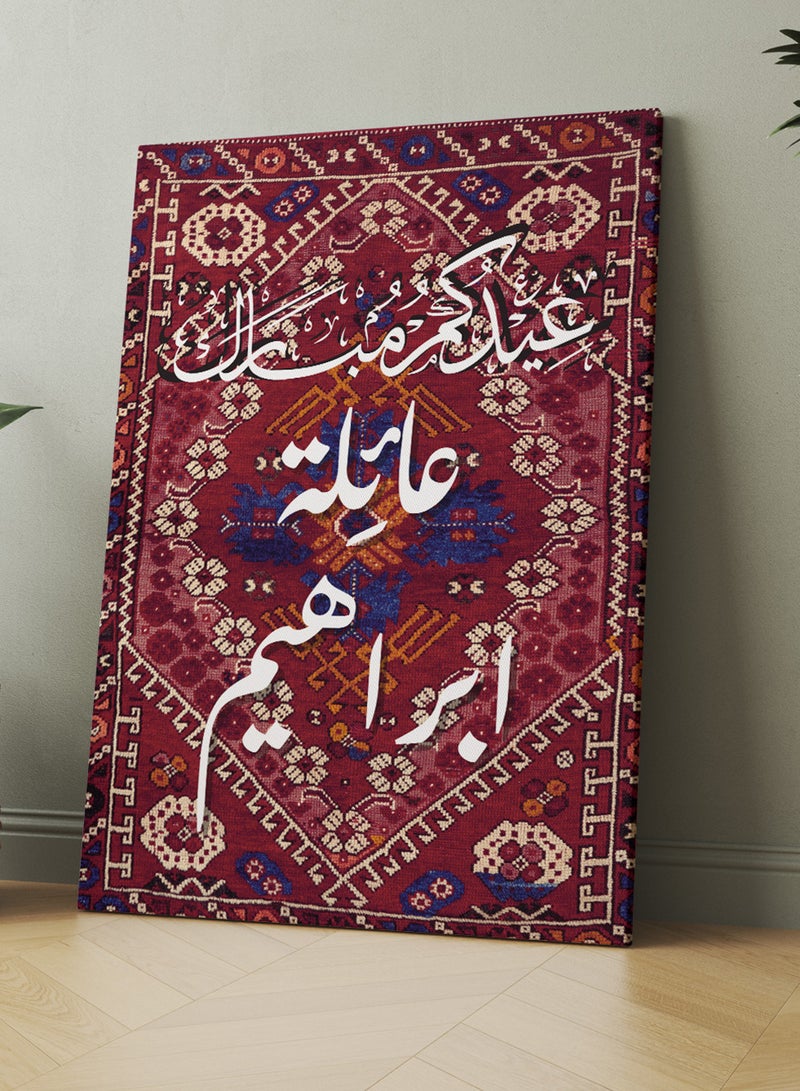 عِيدُكُم مُبَارَك
عائِلة
ابراهيم